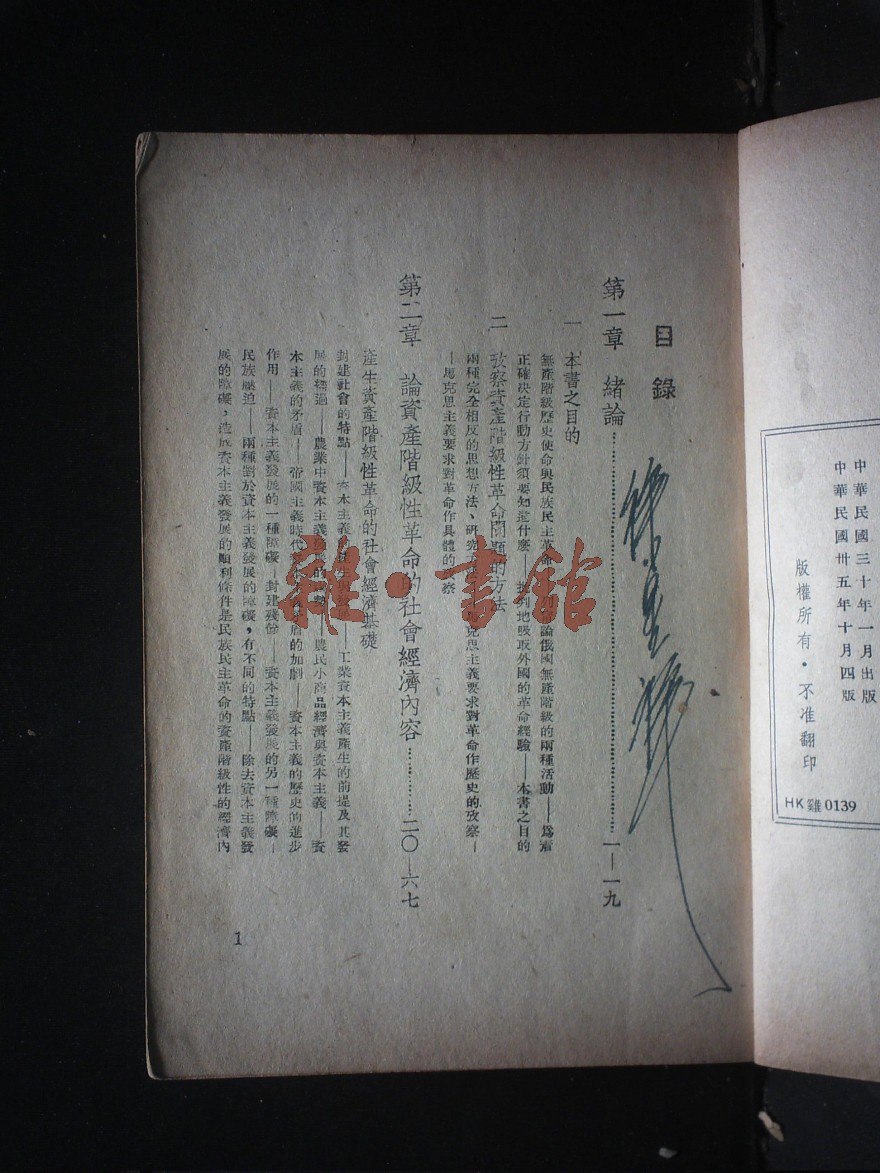 中華民國三十年一月出版
中華民國卅五年十月四版
版權所有・不准翻印
HK雞0139
目錄
第一章 緒論……一—一九
一 本書之目的
無產階級歷史使命與民族民主革命 論俄國無產階級的兩種活動——爲着
正確決定行動方針須要知道什麼——批判地吸取外國的革命經驗——本書之目的
二 攷察資產階級性革命問題的方法
兩種完全相反的思想方法、研究 馬克思主義要求對革命作歷史的攷察—
—馬克思主義要求對革命作具體的攷察
第二章 論資產階級性革命的社會經濟內容……二〇—六七
產生資產階級性革命的社會經濟基礎
封建社會的特點——資本主義 ——工業資本主義產生的前提及其發
展的經過——農業中資本主義發展的 ——農民小商品經濟與資本主義——資
本主義的矛盾——帝國主義時代資本主義矛盾的加劇——資本主義的歷史的進步
作用——資本主義發展的一種障礙—封建殘份——資本主義發展的另一種障礙—
民族壓迫——兩種對於資本主義發展的障礙，有不同的特點——除去資本主義發
展的障礙，造成資本主義發展的順利條件是民族民主革命的資產階級性的經濟內
1
雜・書館